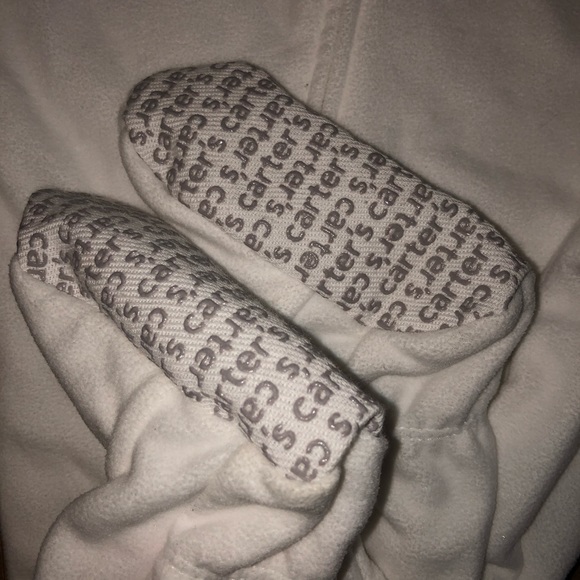 carter's carter's
carter's carter's
carter's carter's
carter's carter's
carter's carter's
carter's
carter's
carter's
carter's